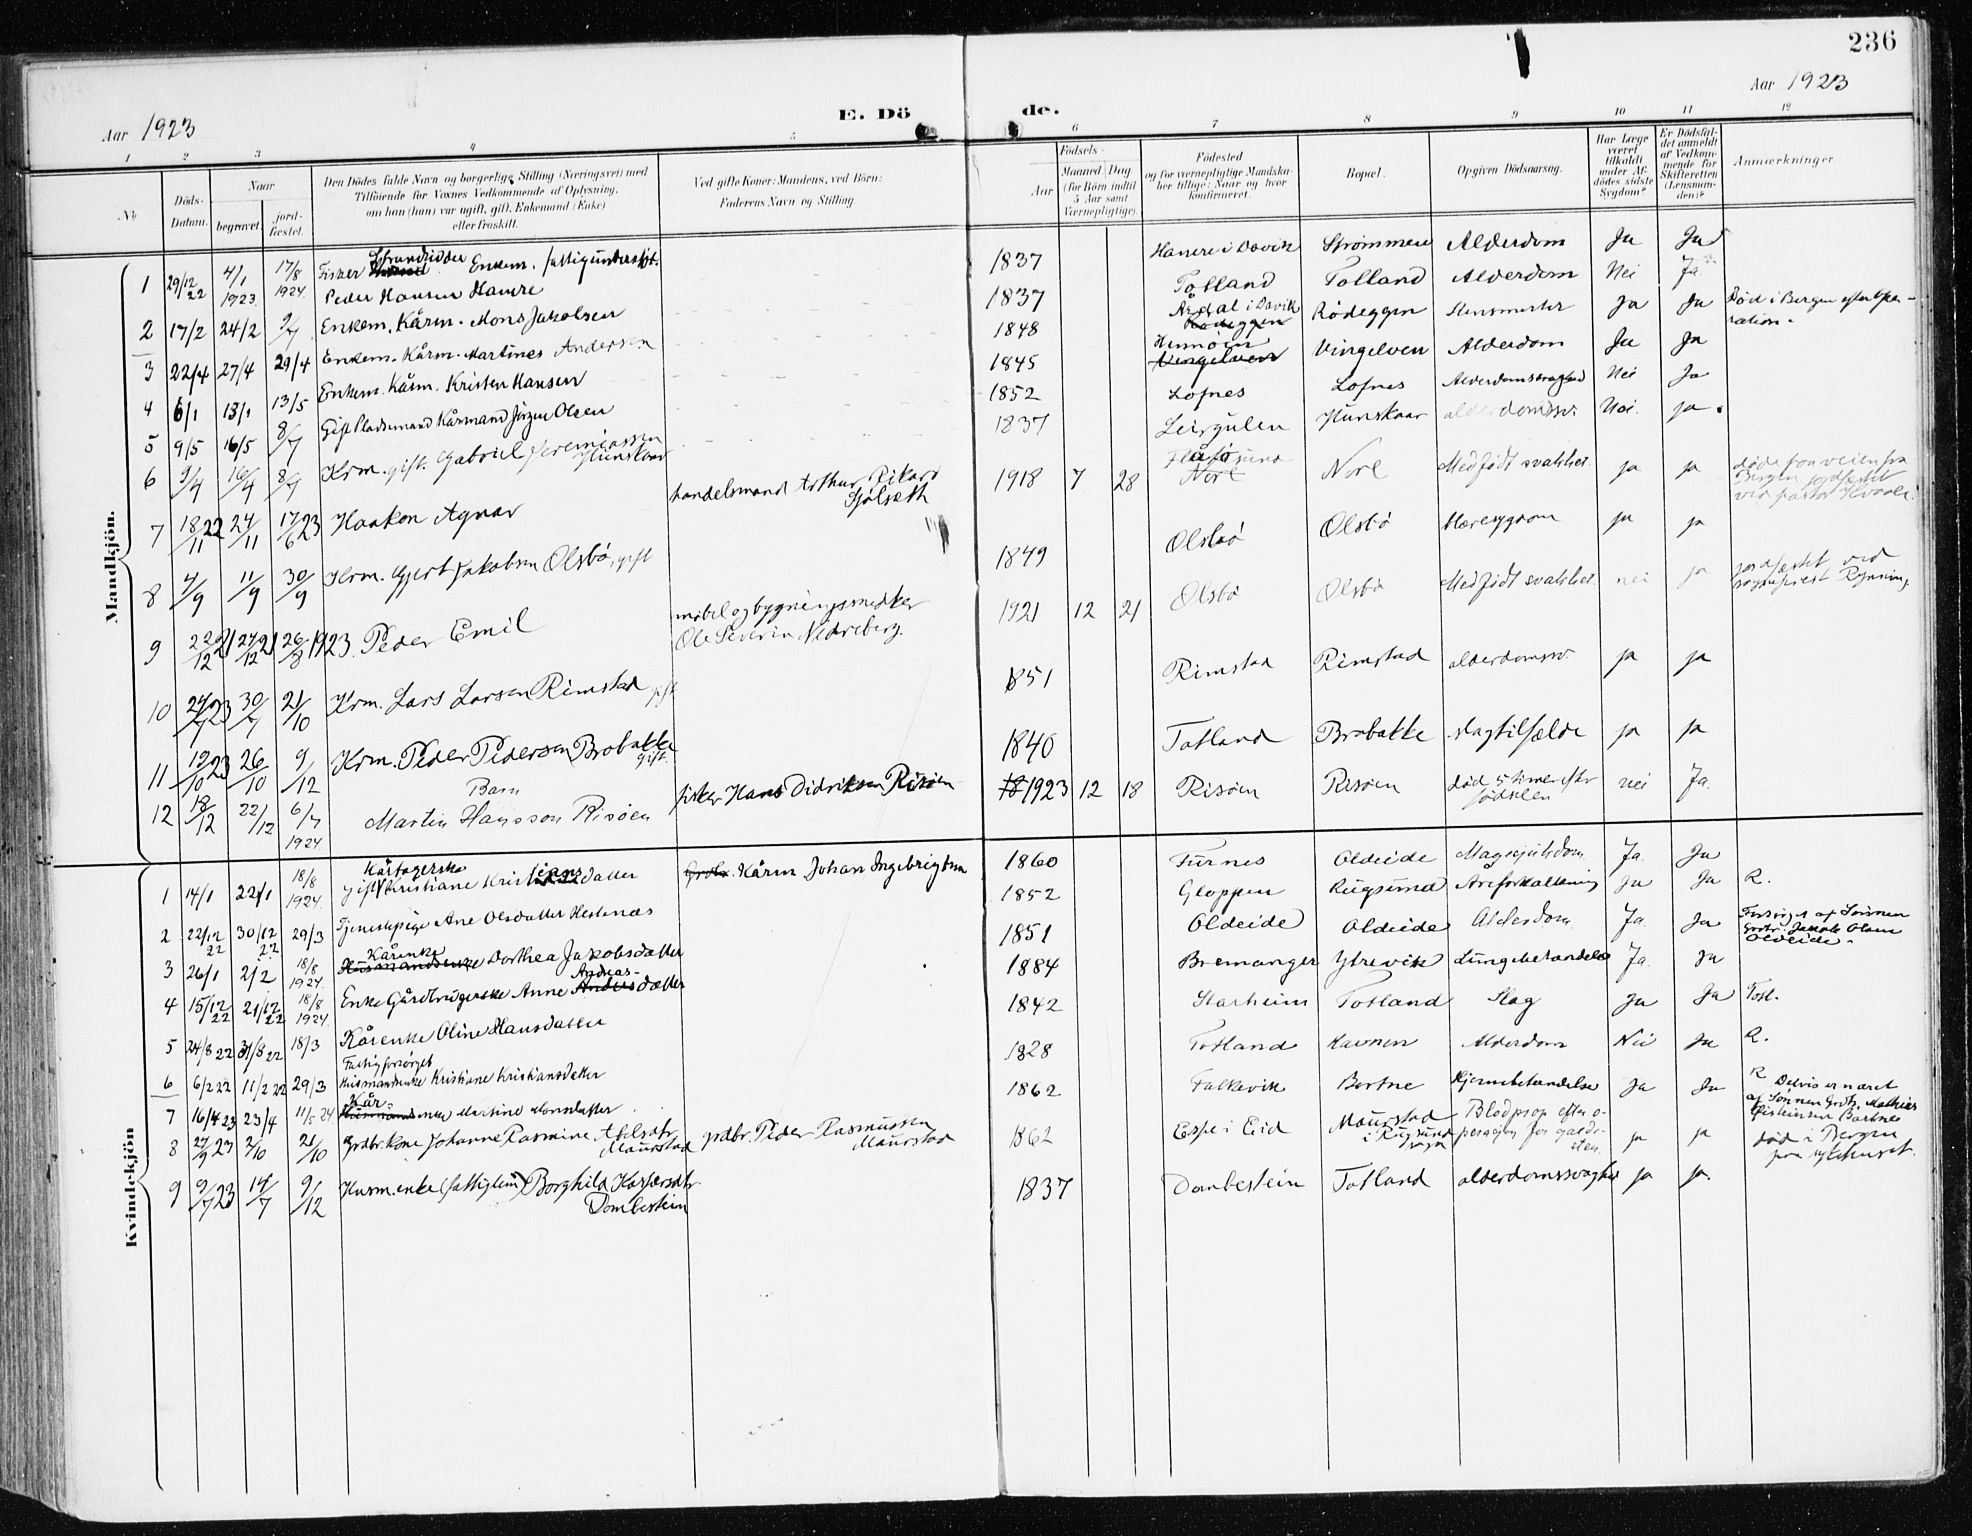 236
Aar 1923
E. Dö de.
Aar 1923
1 2 3 4 5 6 7 8 9 10 11 12
No
Döds-Datum.
Naar
begravet.
jord-fæstet.
Den Dödes fulde Navn og borgerlige Stilling (Næringsvei) med
Tilföiende for Voxnes Vedkommende af Oplysning,
om han (hun) var ugift, gift, Enkemand (Enke)
eller fraskilt.
Ved gifte Koner: Mandens, ved Börn:
Faderens Navn og Stilling.
Födsels-
Aar
Maaned Dag
(for Börn indtil
5 Aar samt
Værnepligtige).
Födested
og for værnepligtige Mandska-
ber tillige: Naar og hvor
konfirmeret.
Bopæl.
Opgiven Dödsaarsag.
Har Læge
været
tilkaldt
under Af-
dödes sidste
Sygdom?
Er Dödsfal-
det anmeldt
af Vedkom-
mende for
Skifteretten
(Lensman-
den)?
Anmærkninger.
Mandkjön.
1 29/12 22 4/1 1923 17/8 1924 Fisker Strandsidder Enkem. fattigunderstöt. Peder Hansen Hamre 1837 Hamre i Davik Strømmen Alderdom Ja Ja
2 17/2 24/2 9/7 Enkem. Kårm. Mons Jakobsen 1837 Totland Totland Alderdom Nei Ja
3 22/4 27/4 29/4 Enkem. Kårm. Martines Andersen 1848 Årdal i Davik Rødeggen Rødeggen Ja Ja Död i Bergen efter Ope-
ration.
4 6/1 13/1 13/5 Enkem. Kårm. Kristen Hansen 1845 Vingelven Vingelven Alderdom Ja Ja
5 9/5 16/5 8/7 Gift Pladsemand Kårmand Jörgen Olsen 1852 Lofnes Lofnes Nei Ja
6 9/4 16/4 8/7 Krm. gift. Gabriel Jeremiassen Hunskaar 1837 Leirgulen Hunskaar alderdomssv. Nei. ja.
7 18/11 22 24/11 17/6 23 Haakon Agnar handelsmand Arthur Rikard Sjölseth 1918 7 28 Nore Nore Medfödt svakhet ja ja
8 4/9 11/9 30/9 Krm. Gjert Jakobsen Olsbö, gift 1849 Olsbö Olsbö ja ja
9 22/12 21 27/12 21 26/8 1923. Peder Emil möbel og bygningssnedker
Ole Severin Nedreberg. 1921 12 21 Olsbö Olsbö Medfödt svakhet nei ja jordfæstet ved
sogneprest Rynning
10 24/7 23 30/7 21/10 Krm. Lars Larsen Rimstad gift 1851 Rimstad Rimstad alderdomssv. ja ja
11 19/10 23 26/10 9/12 Krm. Peder Pedersen Brobakke gift. 1840 Totland Brobakke slagtilfælde ja ja
12 18/12 22/12 6/7 1924 Barn Martin Hansson Risöen fisker Hans Didriksen Risöen 1923 12 18 Risöen Risöen död 5 timer efter
födselen nei Ja.
Kvindekjön
1 14/1 22/1 18/8 1924. Gift Kristiane Kristiansdatter Kårm Johan Ingebrigtsen 1860 Furnes Oldeide Ja. Ja
2 22/12 22 30/12 22 29/3 Tjenestepige Ane Olsdatter Hestenæs 1852 Gloppen Rugsund Areforkalkning Ja Ja R.
3 26/1 2/2 18/8 1924. Kårenke Husmandsenke Dorthea Jakobsdatter 1851 Oldeide Oldeide Alderdom Ja. Ja Forsörget af Sönnen
Grdbr. Jakob Olsen
Oldeide.
4 15/12 22 21/12 22 18/8 1924. Enke Gårdbrugerske Anne Andreas- Anders datter 1884 Bremanger Ytrevik Lungebetændelse Ja. Ja
5 24/8 22 31/8 22 18/3 Kårenke Oline Hansdatter 1842 Starheim Totland Slag Ja Ja Totl.
6 6/2 22 11/2 22 29/3 Fattigforsörget Husmandsenke Kristiane Kristiansdatter 1828 Totland Havnen Alderdom Nei Ja R.
7 16/4 23 23/4 11/5 24 Kår- Husmandsenke Martine Monsdatter 1862 Falkevik Bortne Hjernebetændelse Ja Ja R Delvis ernæret
af Sönnen Grdbr. Mathias
Eisteinsen Bortne
8 27/9 23 2/10 21/10 Grdbr.kone Johanne Rasmine Abelsdtr Maurstad grdbr. Peder Rasmussen
Maurstad 1862 Espe i Eid Maurstad
i Rugsund
sogn Blodprop efter o-
perasjon for galde-
sten. ja ja död i Bergen
paa sykehuset.
9 9/7 23 14/7 9/12 Husm.enke (fattiglem) Borghild Kasparsdtr
Dombestein 1837 Dombestein Totland alderdomssvaghet ja ja.